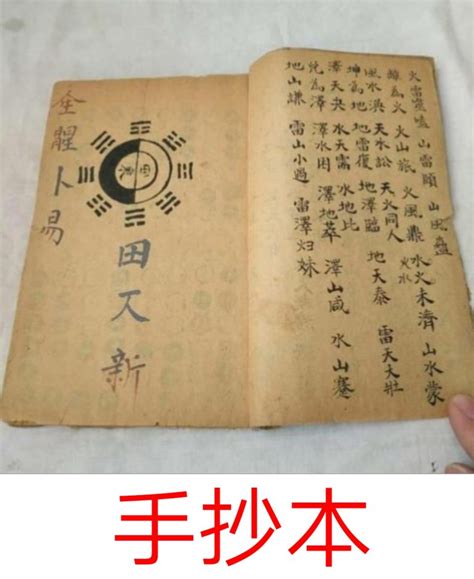 火雷噬嗑 山雷頤 山風蠱
離為火 火山旅 火風鼎 水火未濟 山水蒙
火水
風水渙 天水訟 天火同人
坤為地 地雷復 地澤臨 地天泰 雷天大壯
澤天夬 水天需 水地比
兌為澤 澤水困 澤地萃 澤山咸 水山蹇
地山謙 雷山小過 雷澤归妹
田 新
卜易
手抄本